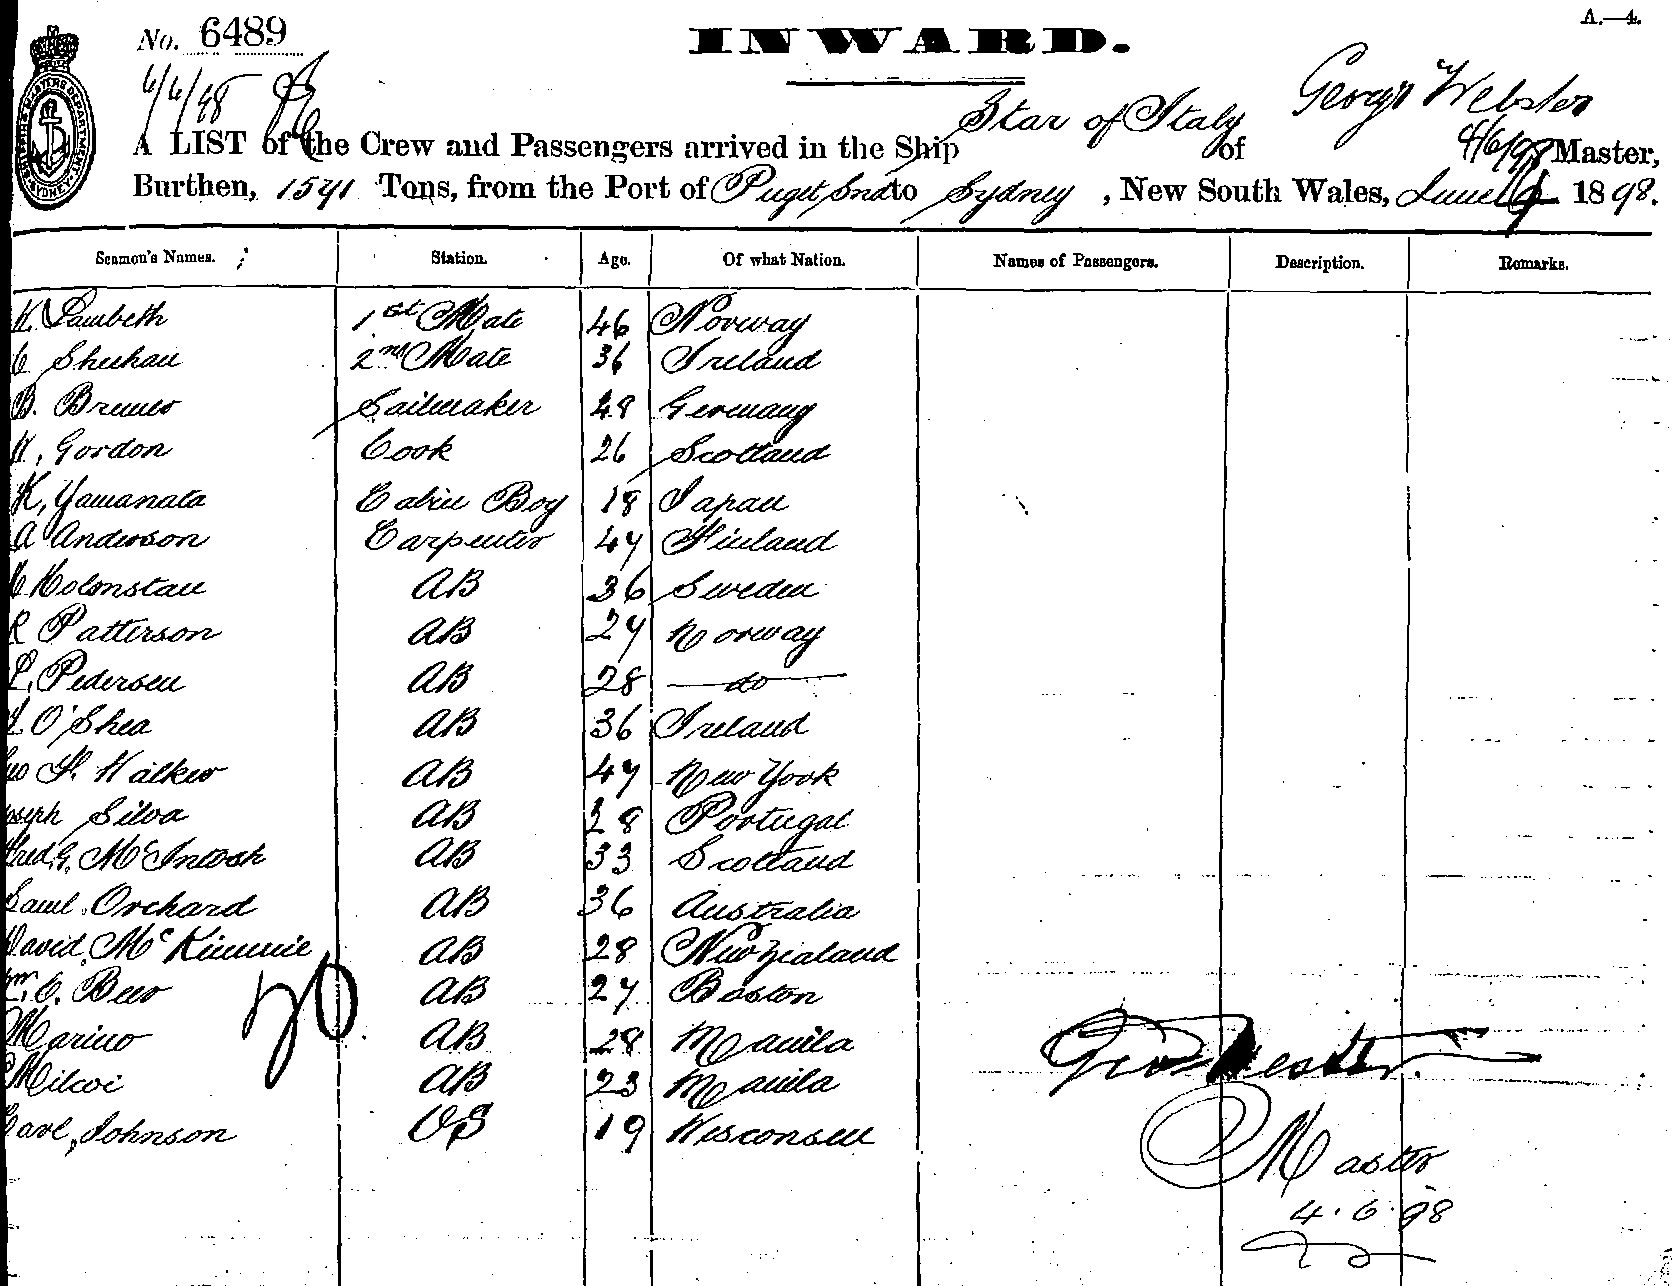 A.—4.
No. 6489
INWARD.
6/6/98
A LIST of the Crew and Passengers arrived in the Ship Star of Italy of George Webster 4/6/98 Master,
Burthen, 1541 Tons, from the Port of Puget Snd to Sydney, New South Wales, June 1898.
Seamen's Names. Station. Age. Of what Nation. Names of Passengers. Description. Remarks.
Lambeth 1st Mate 46 Norway
C Sheehan 2nd Mate 36 Ireland
B. Bremer Sailmaker 48 Germany
Gordon Cook 26 Scotland
K, Yamanata Cabin Boy 18 Japan
A Anderson Carpenter 47 Finland
Holmstan AB 36 Sweden
R Patterson AB 27 Norway
L, Pedersen AB 28 — do —
O'Shea AB 36 Ireland
Walker AB 47 New York
oseph Silva AB 38 Portugal
fred G. McIntosh AB 33 Scotland
Saml. Orchard AB 36 Australia
David, McKimmie AB 28 New Zealand
C. Beer AB 27 Boston
Marino AB 28 Manila
AB 23 Manila
Carl, Johnson OS 19 Wisconsin
20
Geo Webster.
Master
4.6.98